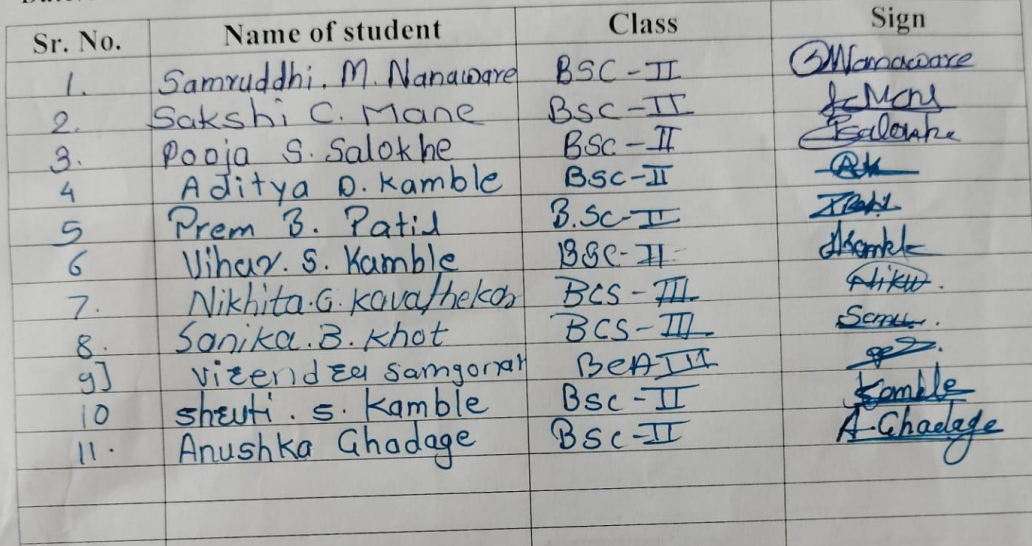 Sr. No. Name of student Class Sign
1. Samruddhi. M. Nanaware BSC-II Nanaware
2. Sakshi C. Mane BSC-II
3. Pooja S. Salokhe BSC-II Salokhe
4 Aditya D. Kamble BSC-II
5 Prem B. Patil B.Sc-II
6 Vihar. S. Kamble BSC-II Kamble
7. Nikhita.G. Kavathekar BCS-III Niku.
8. Sanika.B. Khot BCS-III
9] BCA-III
10 shruti. s. Kamble Bsc-II Kamble
11. Anushka Ghadage BSC-II A-Ghadage